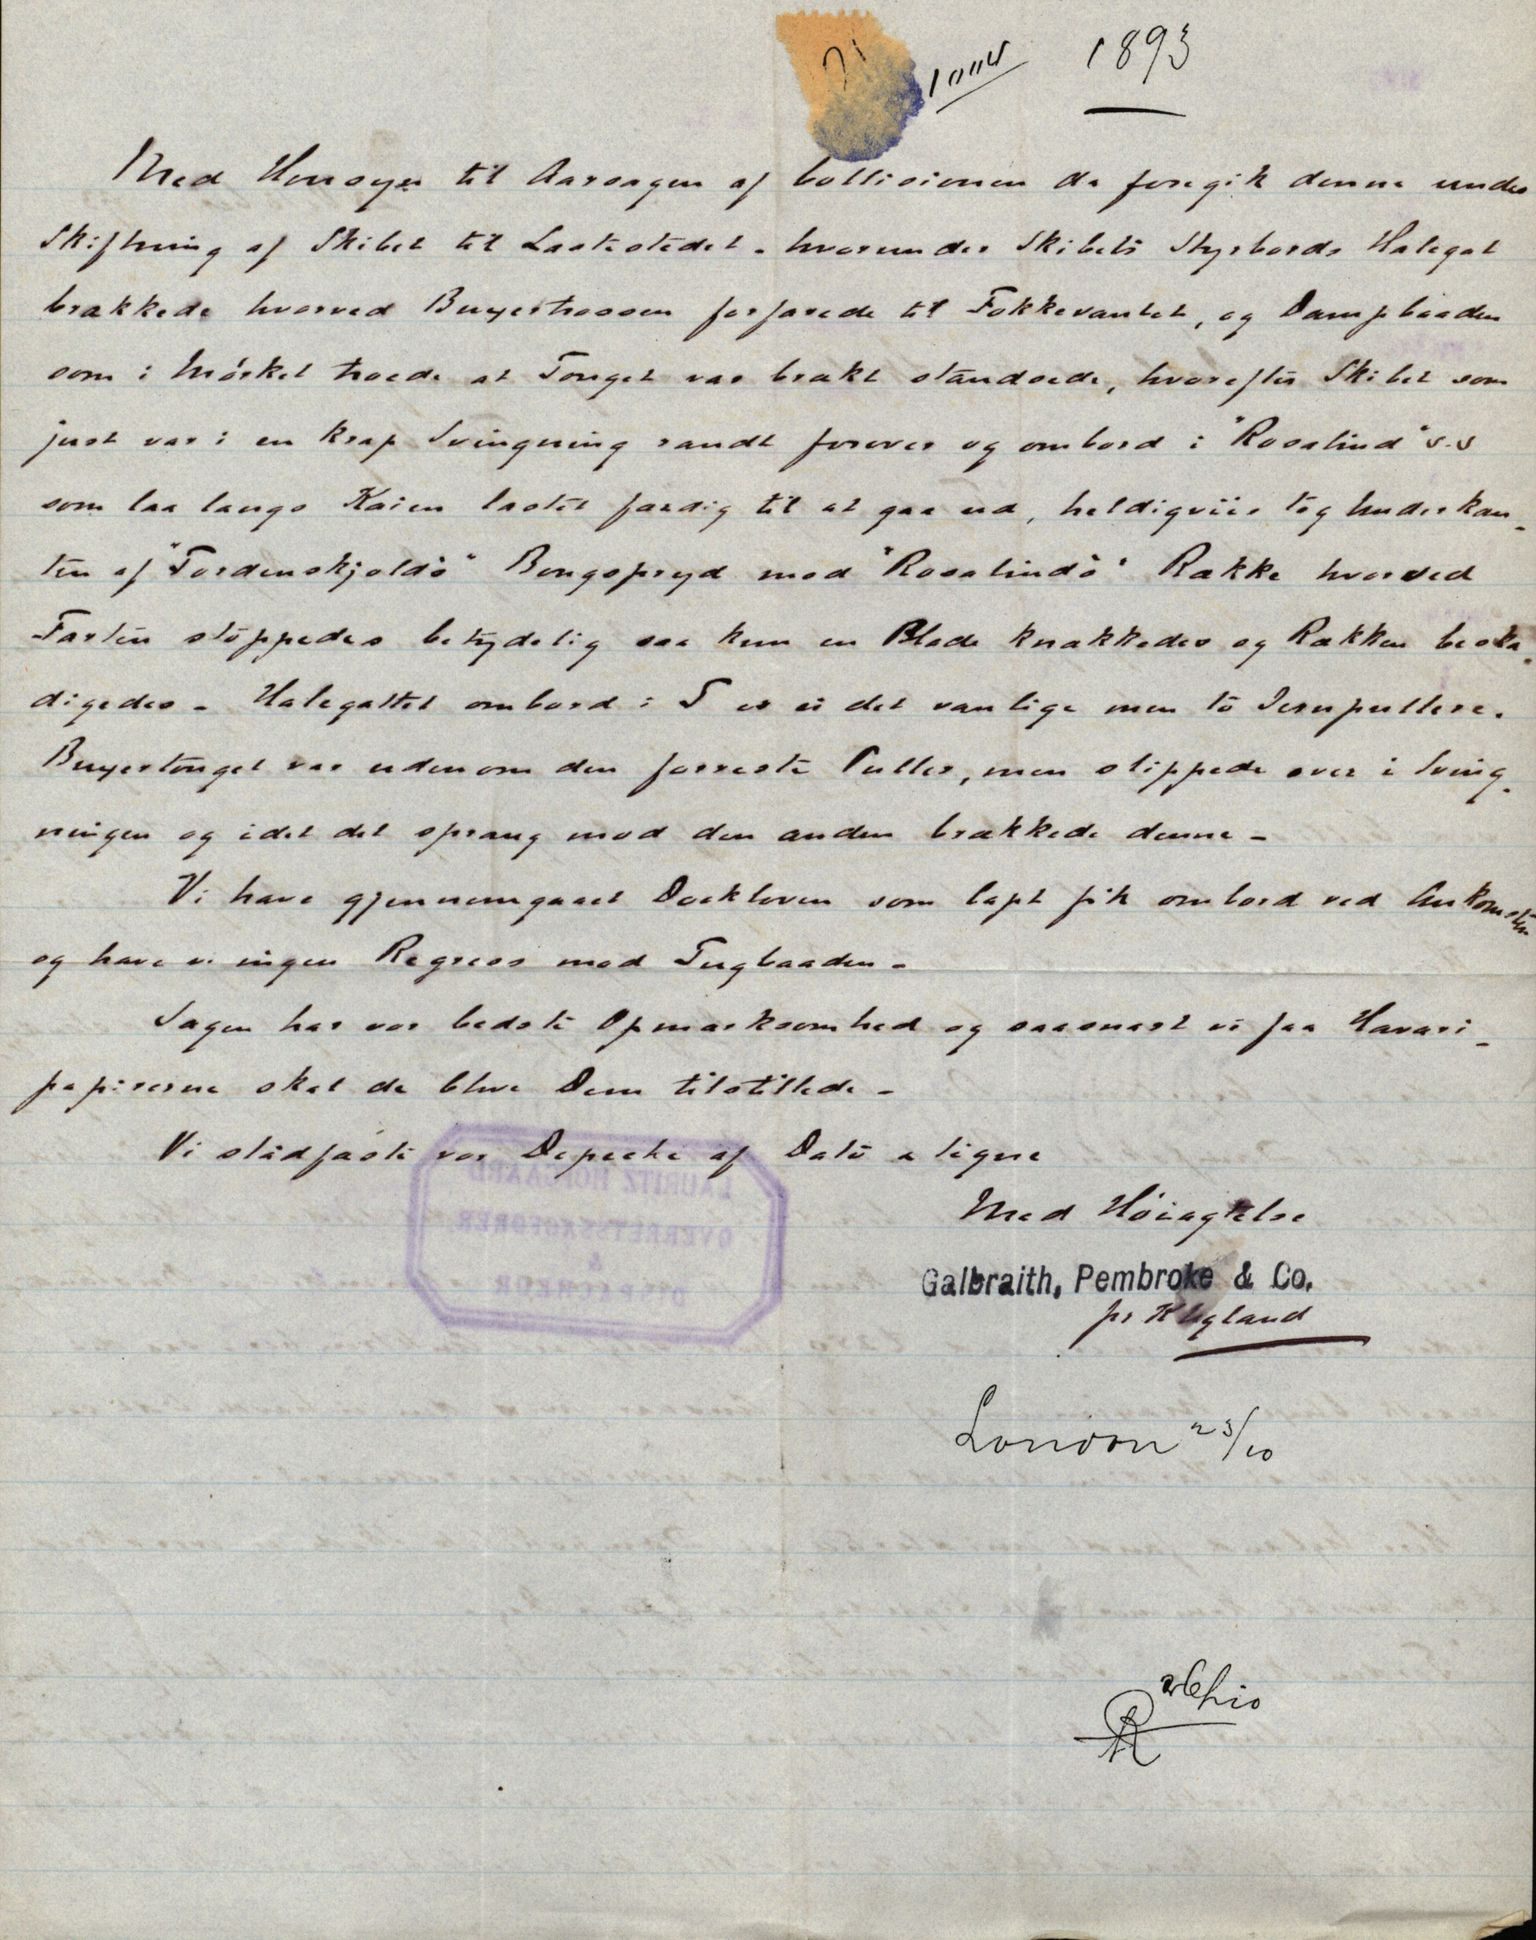 1893
Med Hensyn til Aarsagen af Collisionen da foregik denne under
Skiftning af Skibet til Lastestedet - hvorunder Skibets Styrbords Halegat
brækkede hvorved Bugertrossen forfarede til Fokkevantet, og Dampbaaden
som i Mørket troede at Touget var brakt standsede, hvorefter Skibet som
just var i en krap Svingning randt forover og ombord i "Rosalind" S.S
som laa langs Kaien lastet færdig til at gaa ud, heldigviis tog Underkan-
ten af "Tordenskjolds" Bougspryd mod "Rosalinds" Række hvorved
Farten stoppedes betydelig saa kun en Plade knækkedes og Rækken beska-
digedes - Halegattet ombord i T er ei det vanlige men to Jernpullere.
Bugertouget var udenom den forreste Puller, men slippede over i Sving-
ningen og idet det sprang mod den anden brækkede denne -
Vi have gjennemgaaet Dockloven som Capt fik ombord ved Ankomsten
og have vi ingen Regress mod Tugbaaden -
Sagen har vor bedste Opmærksomhed og saasnart vi faa Havari-
papirerne skal de blive Dem tilstillede -
Vi stadfæste vor Depeche af Dato & tegne
Med Høiagtelse
Galbraith, Pembroke & Co.
pr Kugland
London 23/10
LAURITZ HOFGAARD
OVERRETSSAGFØRER
&
DISPACHEUR